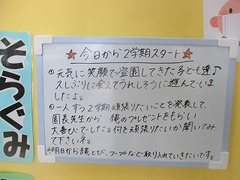 そらぐみ
★今日から2学期スタート★
①元気に笑顔で登園してきた子ども達♪
久しぶりに会えてうれしそうに遊んでいま
したよ。
②一人ずつ2学期頑張りたいことを発表して、
園長先生から 俵のプレゼントをもらい
大喜びでした。何を頑張りたいか聞いてみ
て下さいネ。
※明日から縄とび、フープなど取り入れていきたいです。